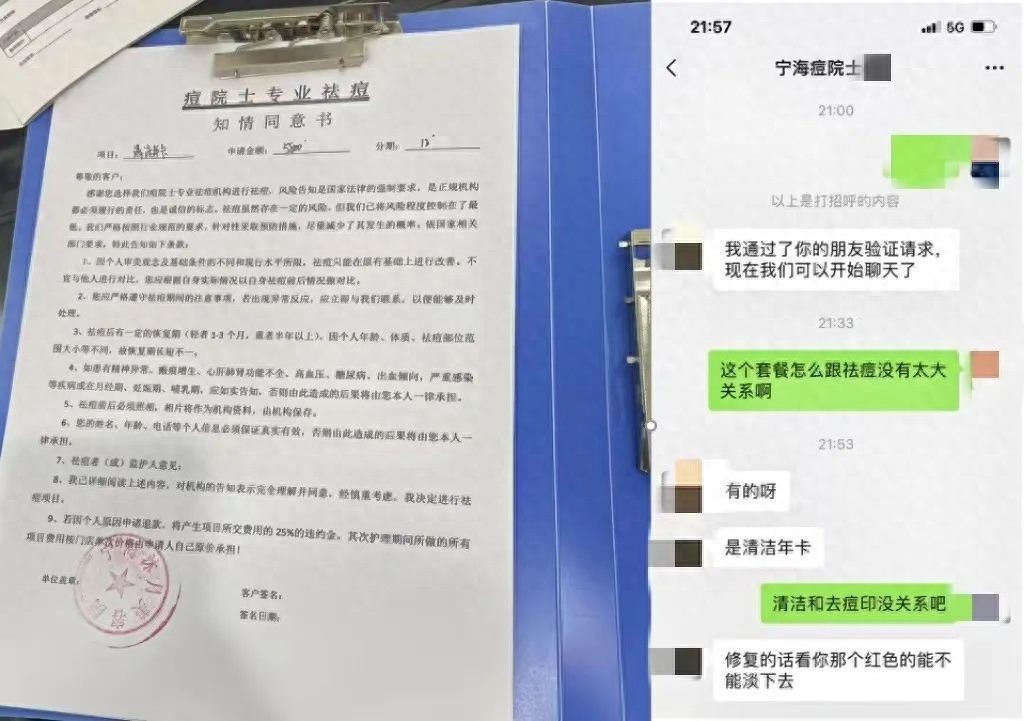 痘院士专业祛痘
知情同意书
项目：清洁年卡 申请金额：5800 分期：12
尊敬的客户：
感谢您选择我们痘院士专业祛痘机构进行祛痘，风险告知是国家法律的强制要求，是正规机构
都必须履行的责任，也是诚信的标志。祛痘虽然存在一定的风险，但我们已将风险程度控制在了最
低。我们严格按照行业规范的要求，针对性采取预防措施，尽量减少了其发生的概率。依国家相关
部门要求，特此告知如下条款：
1、因个人审美观念及基础条件的不同和现行水平所限，祛痘只能在原有基础上进行改善。不
宜与他人进行对比，您应根据自身实际情况以自身祛痘前后情况做对比。
2、您应严格遵守祛痘期间的注意事项，若出现异常反应，应立即与我们联系，以便能够及时
处理。
3、祛痘后有一定的恢复期（轻者1-3个月，重者半年以上），因个人年龄、体质、祛痘部位范
围大小等不同，故恢复期长短不一。
4、如患有精神异常、瘢痕增生、心肝肺肾功能不全、高血压、糖尿病、出血倾向，严重感染
等疾病或在月经期、妊娠期、哺乳期，应如实告知，否则由此造成的后果将由您本人一律承担。
5、祛痘前后必须照相，相片将作为机构资料，由机构保存。
6、您的姓名、年龄、电话等个人信息必须保证真实有效，否则由此造成的后果将由您本人一
律承担。
7、祛痘者（或）监护人意见：
8、我已详细阅读上述内容，对机构的告知表示完全理解并同意，经慎重考虑，我决定进行祛
痘项目。
9、若因个人原因申请退款，将产生项目所交费用的25%的违约金，其次护理期间所做的所有
项目费用按门店单次价格由申请人自己原价承担！
单位盖章：
客户签名：
签名日期：
21:57
5G
宁海痘院士
21:00
以上是打招呼的内容
我通过了你的朋友验证请求，
现在我们可以开始聊天了
21:33
这个套餐怎么跟祛痘没有太大
关系啊
21:53
有的呀
是清洁年卡
清洁和去痘印没关系吧
修复的话看你那个红色的能不
能淡下去